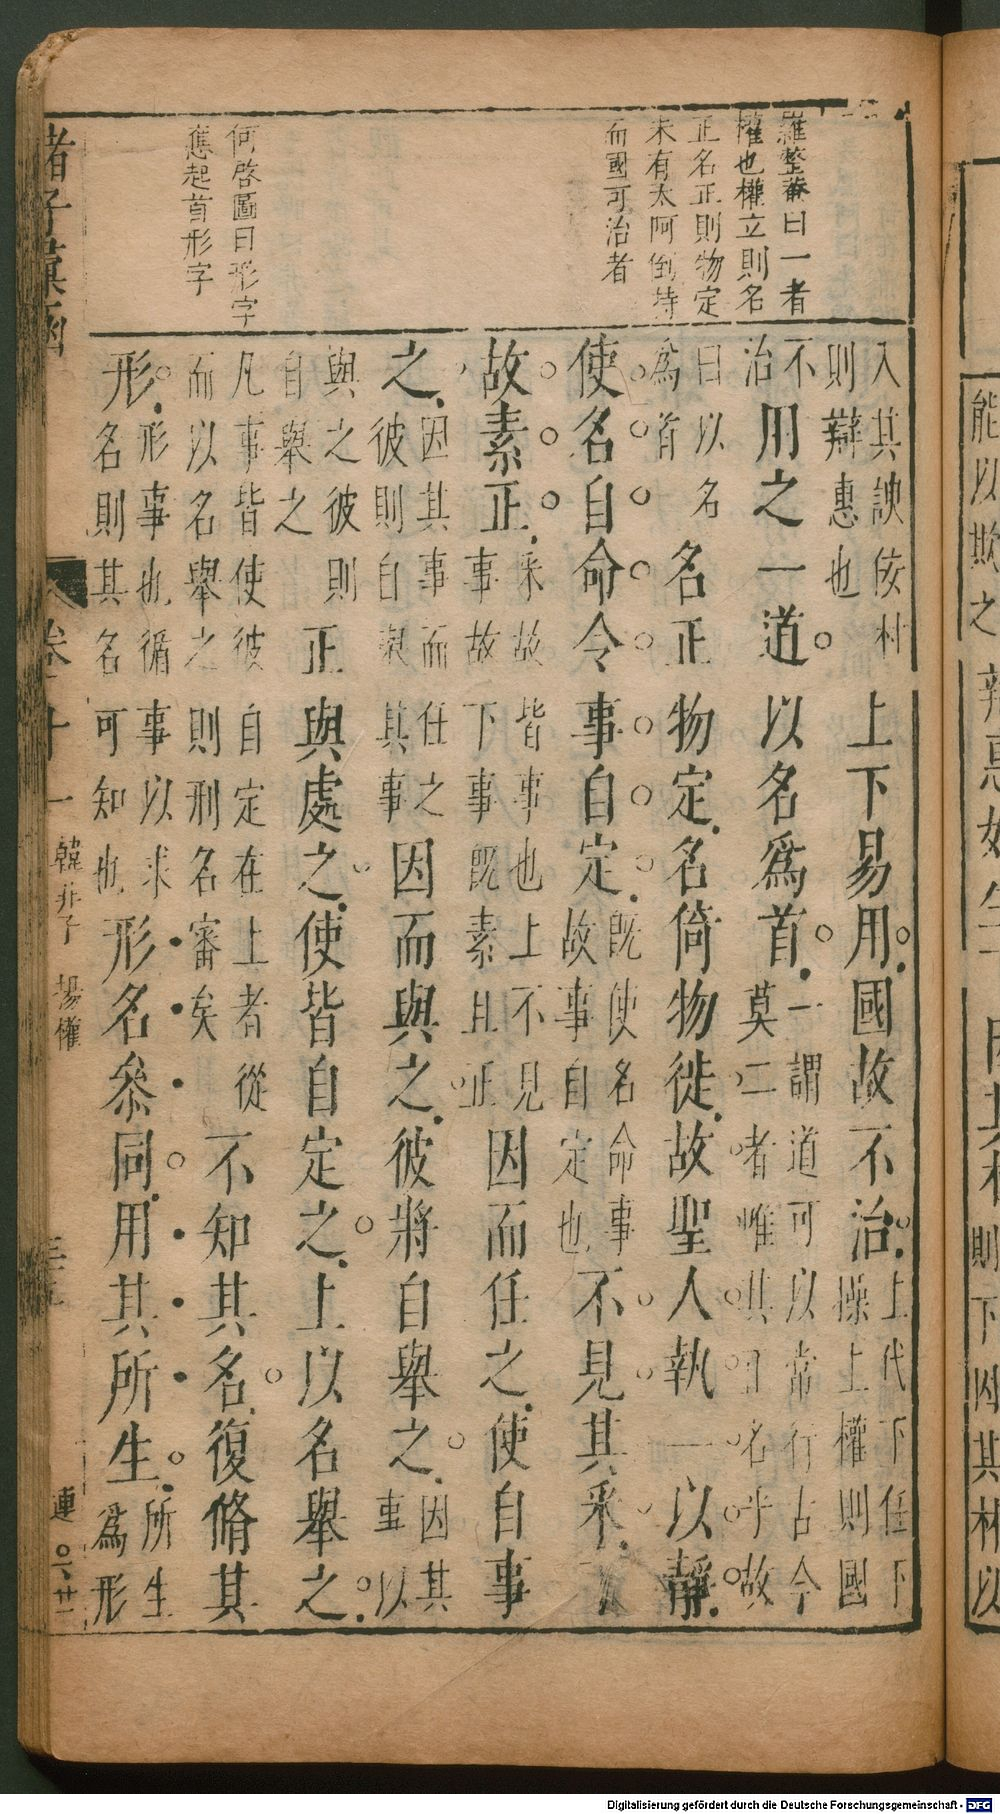 羅整菴曰一者
權也權立則名
正名正則物定
未有太阿倒持
而國可治者
何啓圖曰形字
應起首形字
能以欺之辨惠好生因其材則下因其材以
入其諛佞材
則辯惠也
上下易用國故不治
上代下任下
操上權則國
不
治
用之一道以名爲首
一謂道可以常行古今
莫二者唯其曰名乎故
曰以名
爲首
名正物定名倚物徙故聖人執一以靜
使名自命令事自定
既使名命事
故事自定也
不見其采下
故素正
采故皆事也上不見
事故下事既素且正
因而任之使自事
之
因其事而任之
彼則自舉其事
因而與之彼將自舉之
因其
事以
與之彼則
自舉之
正與處之使皆自定之上以名舉之
凡事皆使彼自定在上者從
而以名舉之則刑名審矣
不知其名復脩其
形
形事也循事以求
名則其名可知也
形名叅同用其所生
所生
爲形
諸子彙函
卷十一
韓非子 揚權
連
Digitalisierung gefördert durch die Deutsche Forschungsgemeinschaft - DFG